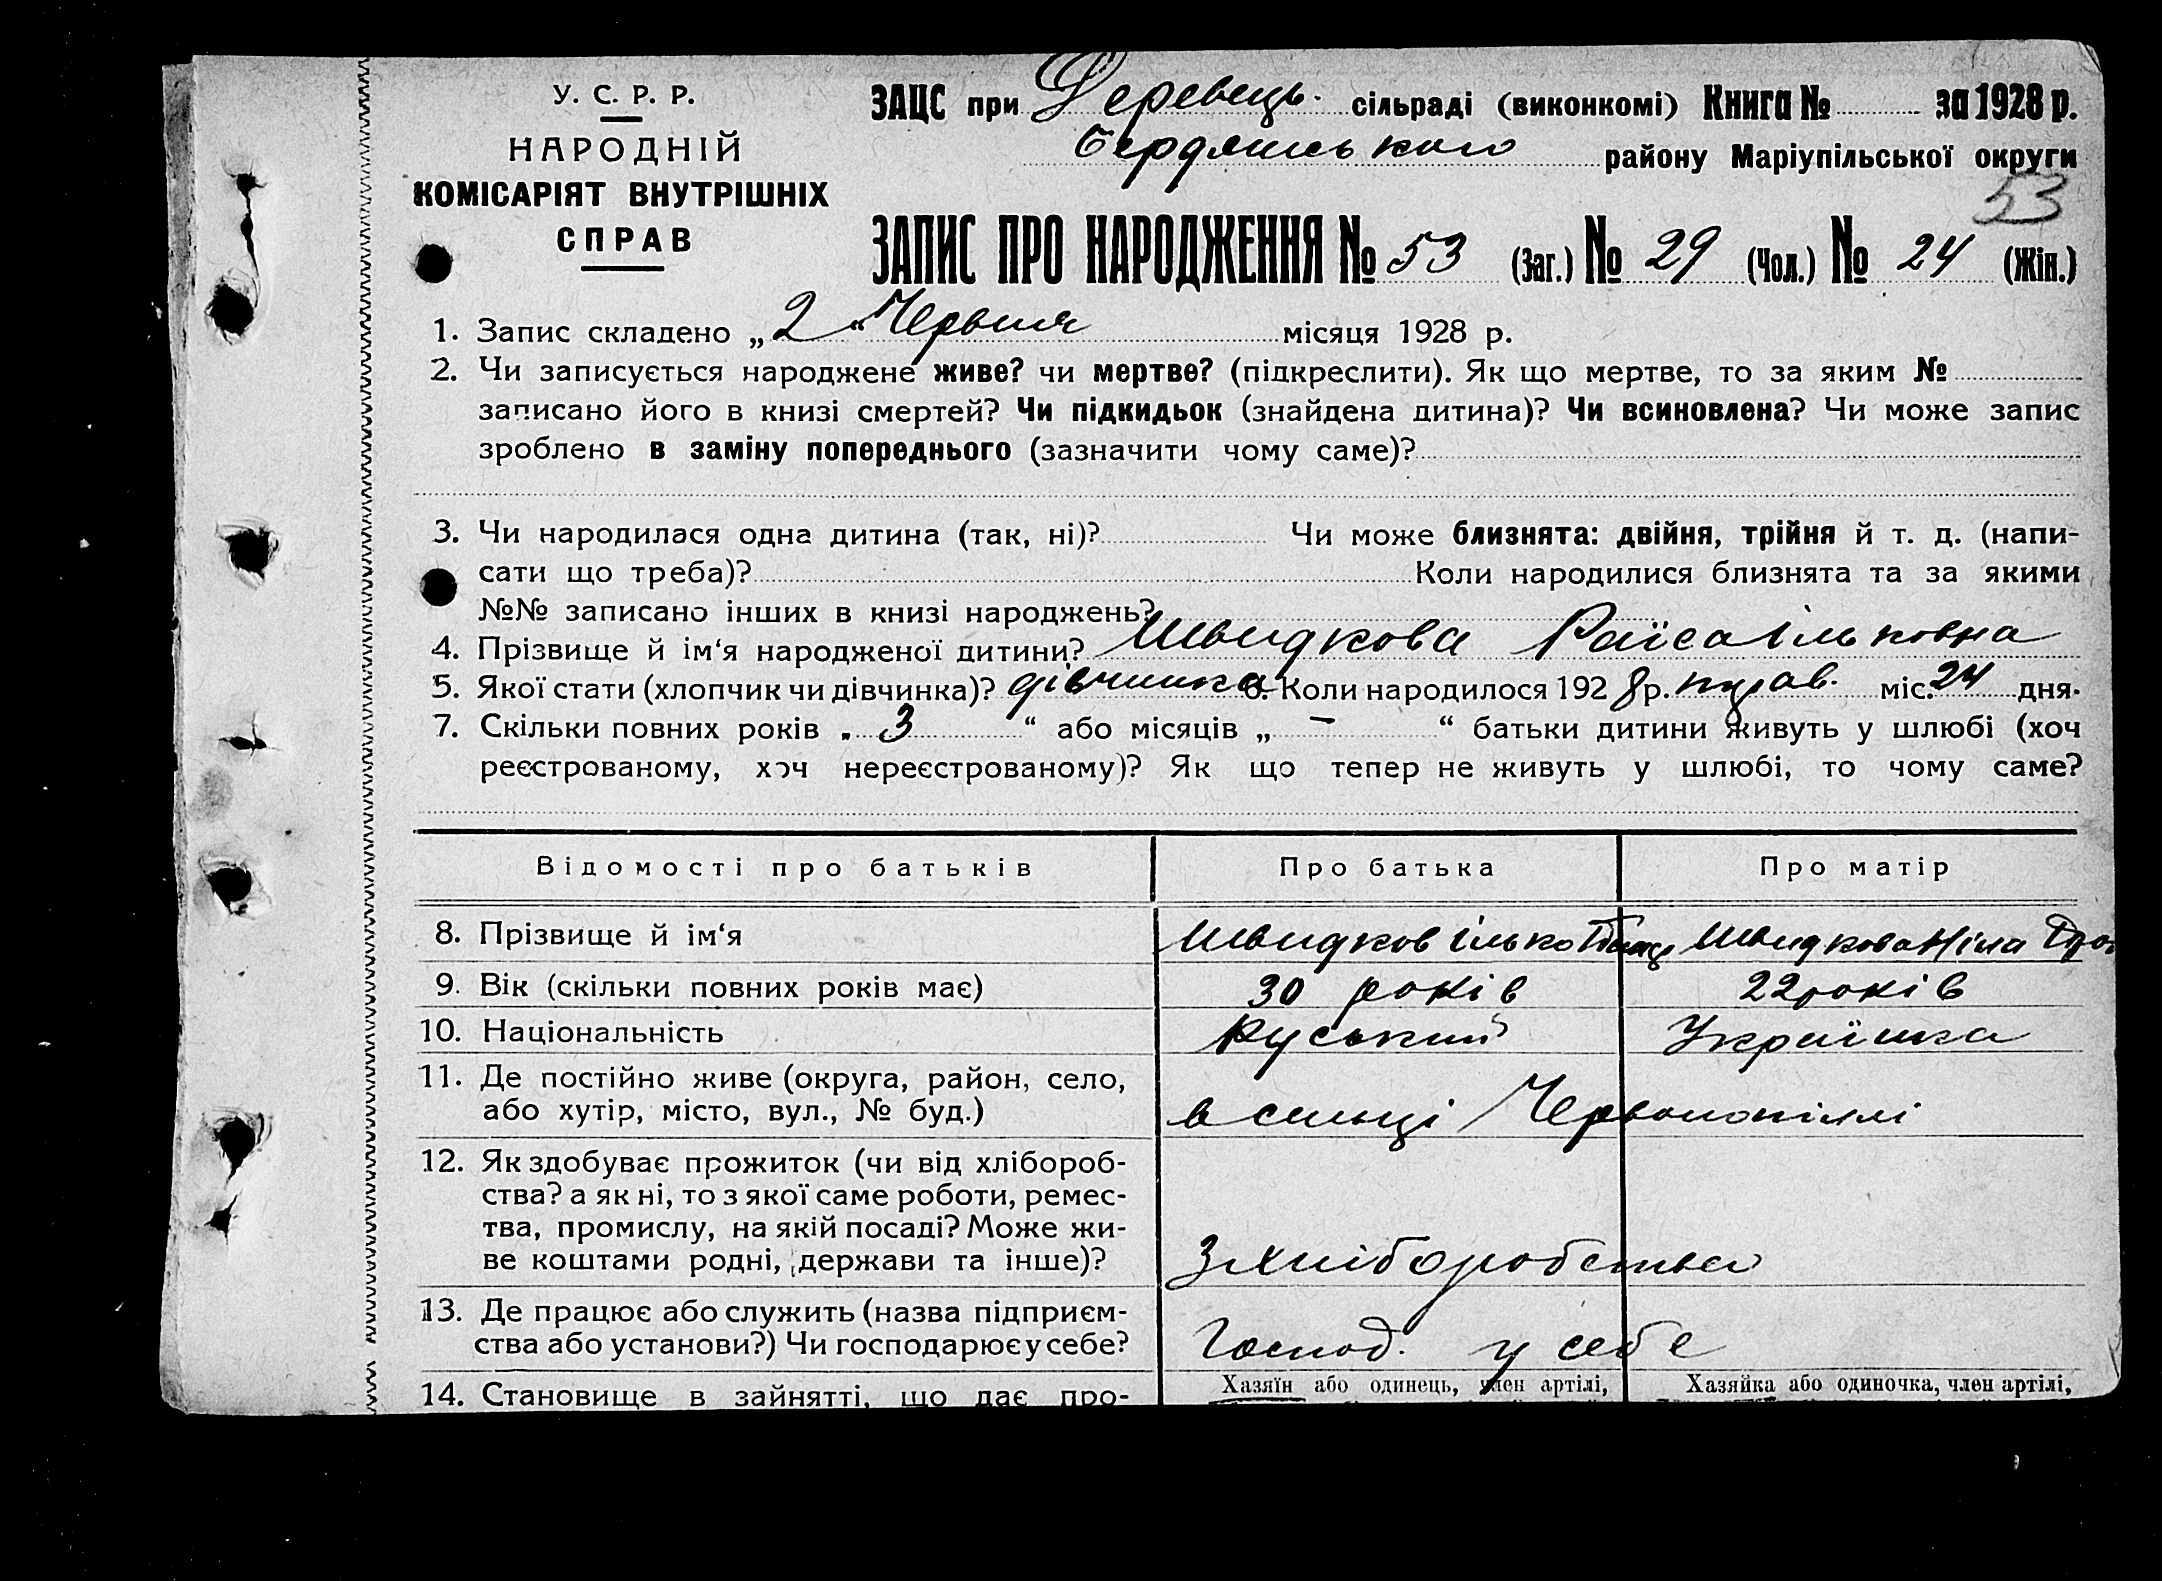 У. С. Р. Р.
НАРОДНІЙ
КОМІСАРІЯТ ВНУТРІШНІХ
СПРАВ
ЗАЦС при Деревець. сільраді (виконкомі) Книга № за 1928 р.
Бердянського району Маріупільської округи
53
ЗАПИС ПРО НАРОДЖЕННЯ № 53 (Заг.) № 29 (Чол.) № 24 (Жін.)
1. Запис складено „2“ Червня місяця 1928 р.
2. Чи записується народжене живе? чи мертве? (підкреслити). Як що мертве, то за яким №
записано його в книзі смертей? Чи підкидьок (знайдена дитина)? Чи всиновлена? Чи може запис
зроблено в заміну попереднього (зазначити чому саме)?
3. Чи народилася одна дитина (так, ні)? Чи може близнята: двійня, трійня й т. д. (напи-
сати що треба)? Коли народилися близнята та за якими
№№ записано інших в книзі народжень?
4. Прізвище й ім‘я народженої дитини? Швидкова Раїса Ільковна
5. Якої стати (хлопчик чи дівчинка)? дівчинка 6. Коли народилося 1928 р. травн. міс. 24 дня.
7. Скільки повних років „ 3 “ або місяців „ — “ батьки дитини живуть у шлюбі (хоч
реєстрованому, хоч нереєстрованому)? Як що тепер не живуть у шлюбі, то чому саме?
Відомості про батьків Про батька Про матір
8. Прізвище й ім‘я Швидков Ілько Швидкова Ніна
9. Вік (скільки повних років має) 30 років 22 років
10. Національність Руський Українка
11. Де постійно живе (округа, район, село,
або хутір, місто, вул., № буд.) в сильці Червонопіллі
12. Як здобуває прожиток (чи від хлібороб-
ства? а як ні, то з якої саме роботи, ремес-
тва, промислу, на якій посаді? Може жи-
ве коштами родні, держави та інше)? З хліборобства
13. Де працює або служить (назва підприєм-
ства або установи?) Чи господарює у себе? Господ. у себе
14. Становище в зайнятті, що дає про- Хазяїн або одинець, член артілі, Хазяйка або одиночка, член артілі,